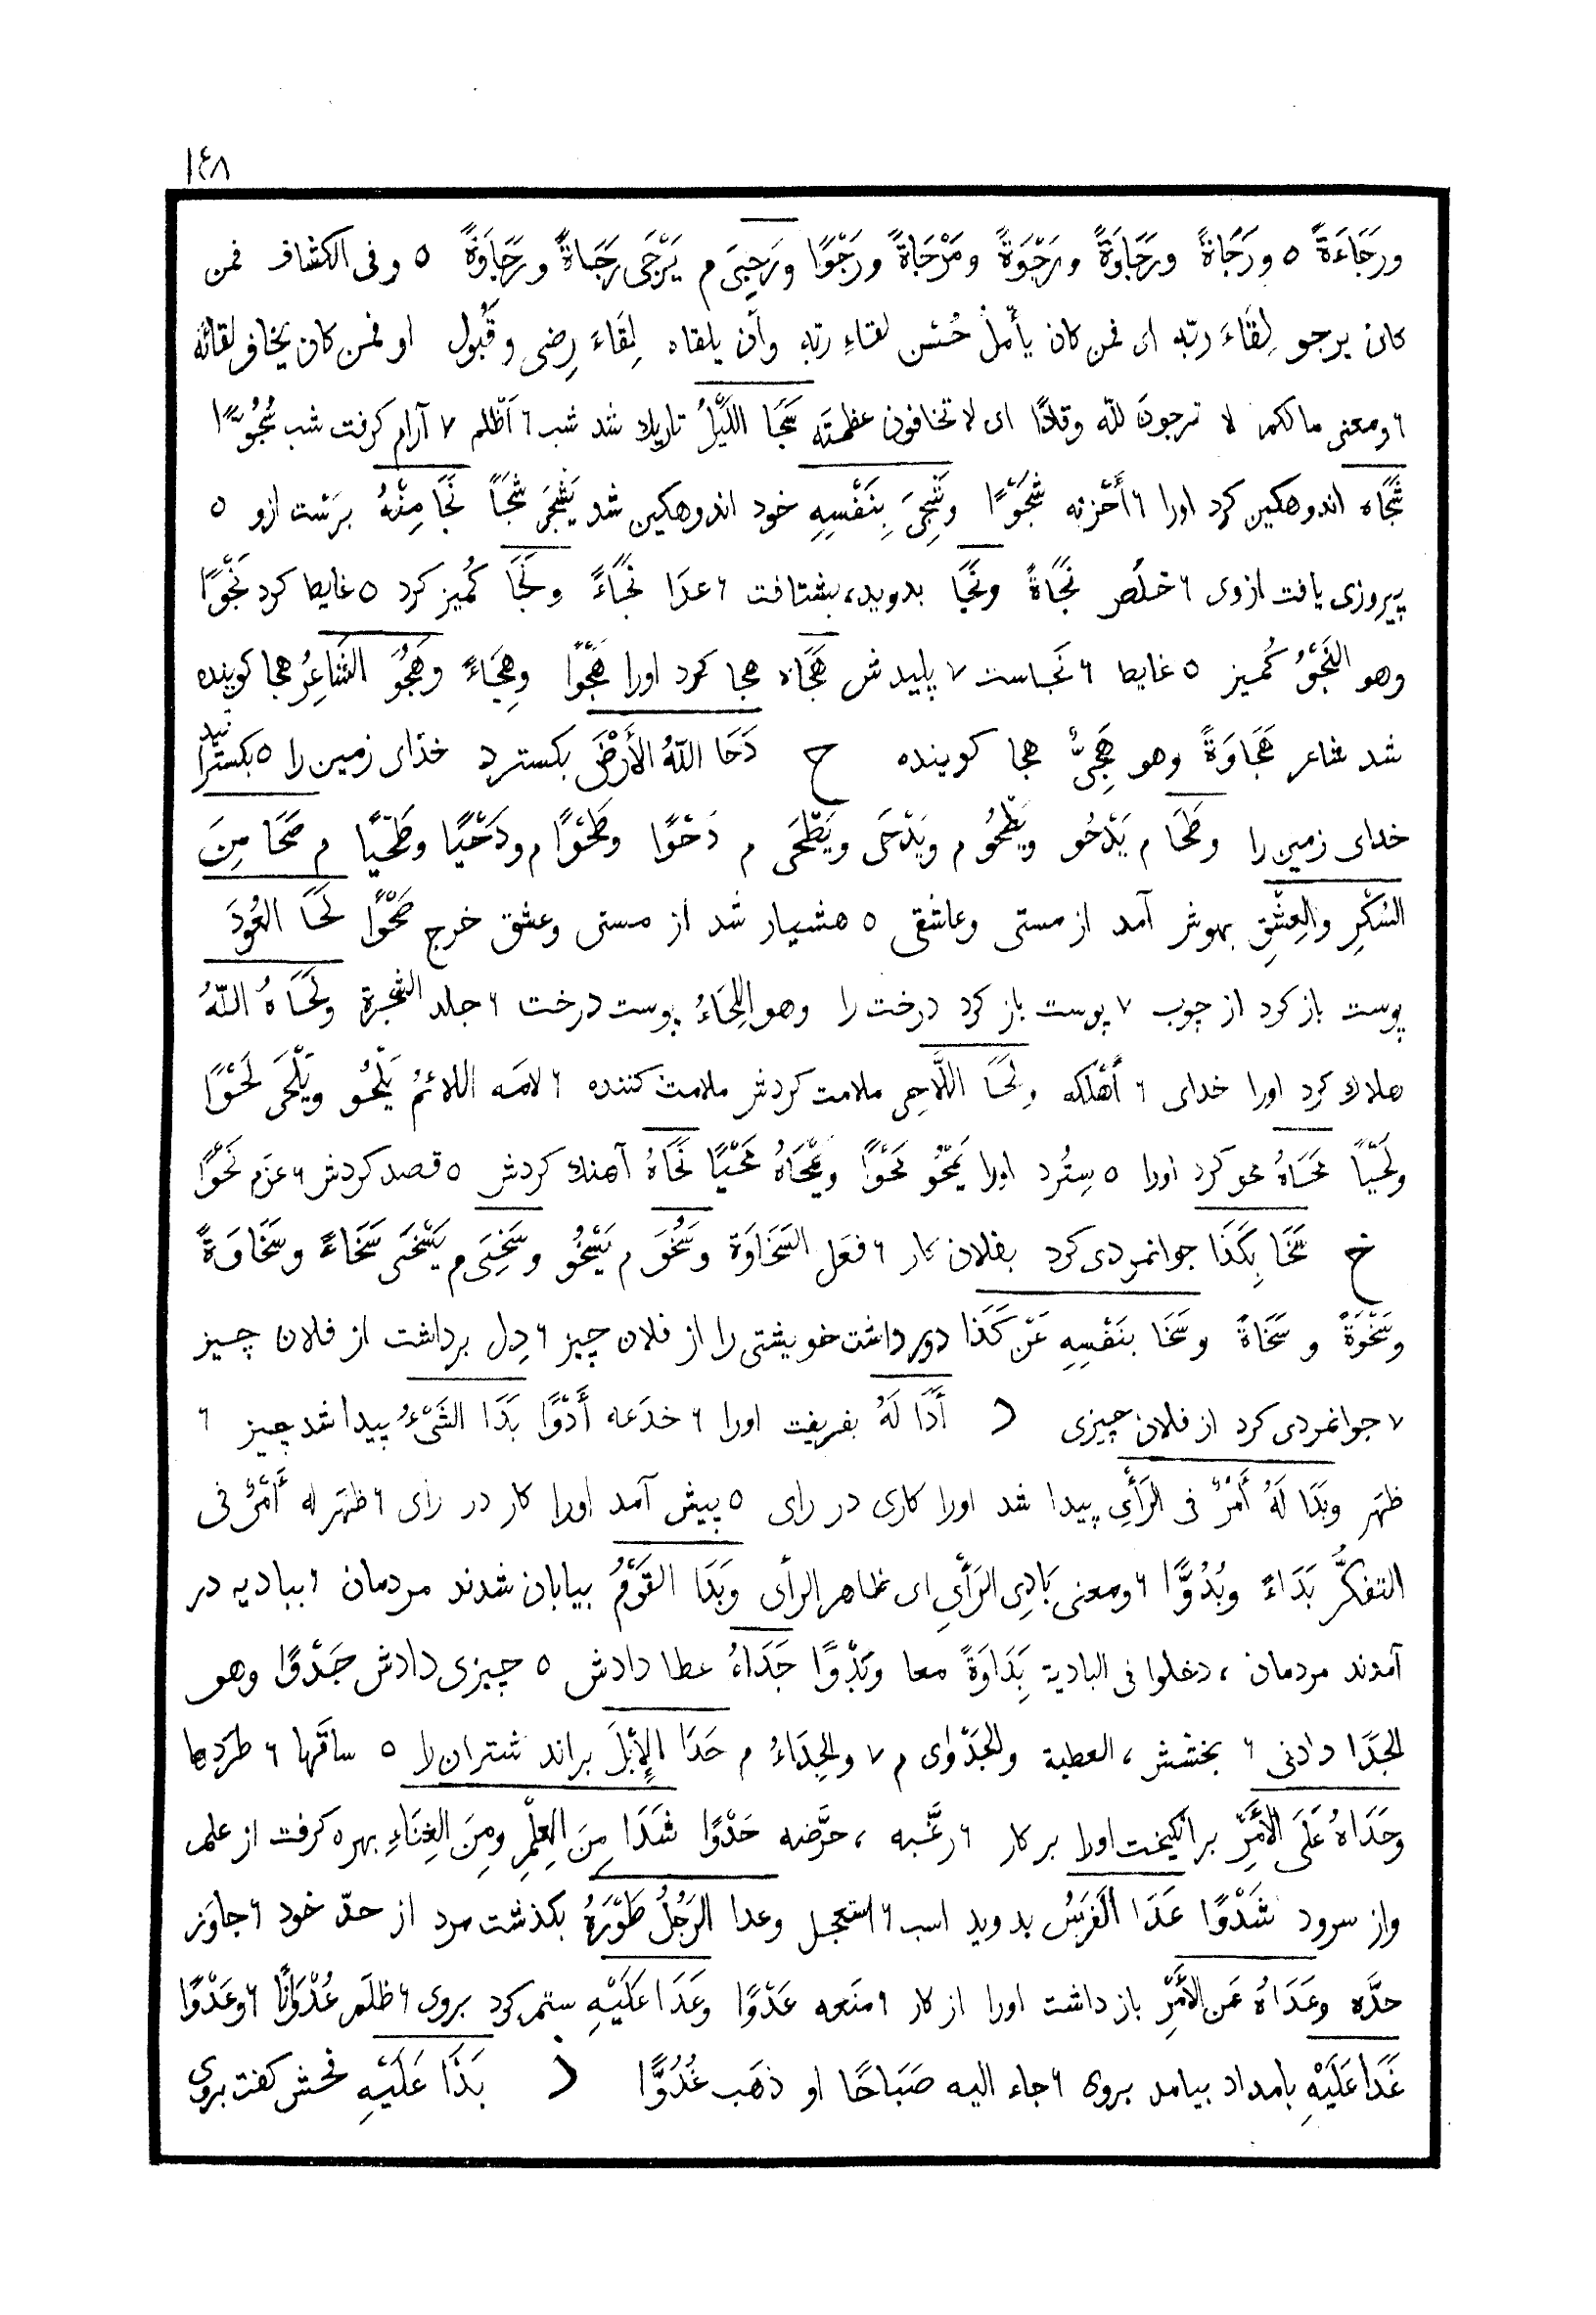 ١٤٨
ورَجَاءَةً ٥ ورَجَاةً ورَجَاوَةً ورَجْوَةً ومَرْجَاةً ورَجْوًا ورَجِيَ م يَرْجَى رَجَاةً ورَجَاوَةً ٥ وفى الكشاف فمن
كان يرجو لِقَاءَ ربّه اى فمن كان يأملُ حُسْن لقاءِ ربّه وأن يلقاه لِقَاءَ رِضى وقَبُول او فمن كان يخاف لقائه
٦ ومعنى مالكم لا ترجونَ للّه وقارًا اى لا تخافون عظمتَه سَجَا اللَّيْلُ تاريك شد شب ٦ اَظْلم ٧ آرام كرفت شب سُجُوًّا
شَجَاه اندوهكين كرد اورا ٦ أَحْزنه شَجْوًا وشَجِىَ بِنَفْسِهِ خود اندوهكين شد يَشْجَى شَجًا نَجَا مِنْهُ برَست ازو ٥
پيروزى يافت ازوى ٦ خلَص نَجَاةً ونَجَا بدويد، بشتافت ٦ عدَا نَجَاءً ونَجَا كُميز كرد ٥ غايط كرد نَجْوًا
وهو النَجْوُ كُميز ٥ غايط ٦ نَجاست ٧ پليدش هَجَاهُ هجا كرد اورا هَجْوًا وهِجَاءً وهَجُوَ الشَاعِرُ هجا كوينده
شد شاعر هَجَاوَةً وهو هَجِىٌّ هجا كوينده ح دَحَا اللّهُ الأَرْضَ بكسترد خذاى زمين را ٥ بكسترانيد
خداى زمين را وطَحَا م يَدْحُو ويَطْحُو م ويَدْحَى ويَطْحَى م دَحْوًا وطَحْوًا م ودَحْيًا وطَحْيًا م صَحَا مِنَ
السُكْرِ والعِشْقِ بهوش آمد از مستى وعاشقى ٥ هشيار شد از مستى وعشق خرج صَحْوًا لَحَا العُودَ
پوست باز كرد از چوب ٧ پوست باز كرد درخت را وهو اللِحَاءُ پوست درخت ٦ جلد الشجرة ولَحَاهُ اللّهُ
هلاك كرد اورا خداى ٦ أَهْلكه ولَحَا اللَّاحِى ملامت كردش ملامت كننده ٦ لامَه اللائمُ يَلْحُو ويَلْحَى لَحْوًا
ولَحْيًا مَحَاهُ محو كرد اورا ٥ سِتُرد اورا يَمْحُو مَحْوًا ويَمْحَاهُ مَحْيًا نَحَاهُ آهنك كردش ٥ قصد كردش ٦ عزم نَحْوًا
خ سَخَا بِكَذَا جوانمردى كرد بفلان كار ٦ فعَل السَخَاوَة وسَخُوَ م يَسْخُو وسَخِىَ م يَسْخَى سَخَاءً وسَخَاوَةً
وسَخْوَةً و سَخَاةً وسَخَا بنَفْسِهِ عَنْ كَذَا دور داشت خويشتى را از فلان چيز ٦ دِل برداشت از فلان چيز
٧ جوانمردى كرد از فلان چيزى د أَدَا لَهُ بفريفت اورا ٦ خدَعه أَدْوًا بَدَا الشَىْءُ پيدا شد چيز ٦
ظهَر وبَدَا لَهُ أَمْرٌ فى الرَأْىِ پيدا شد اورا كارى در راى ٥ پيش آمد اورا كار در راى ٦ ظهَر له أَمْرٌ فى
التفكُّر بَدَاءً وبُدُوًّا ٦ ومعنى بَادِىَ الرَأْىِ اى ظاهر الرأى وَبَدَا القَوْمُ بيابان شدند مردمان ٦ بباديه در
آمدند مردمان ، دخلوا فى البادية بِدَاوَةً معا وبَدْوًا جَدَاهُ عطا دادش ٥ چيزى دادش جَدْوًا وهو
الجَدَا دادنى ٦ بخشش ، العطية والجَدْوَاى م ٧ والجِدَاءُ م حَدَا الإِبْلَ براند شتران را ٥ ساقها ٦ طرَدها
وحَدَاهُ عَلَى الأَمْرِ برانكيخت اورا بر كار ٦ رغّبه ، حرَّضه حَدْوًا شَدَا مِنَ العِلْمِ ومِنَ الغِنَاءِ بهره كرفت از علم
واز سرود شَدْوًا عَدَا الفَرَسُ بدويد اسب ٦ استعجل وعدا الرَجُلُ طَوْرَهُ بكذشت مرد از حدّ خود ٦ جاوَز
حدَّه وعَدَاهُ عَنِ الأَمْرِ باز داشت اورا از كار ٦ منَعه عَدْوًا وعَدَا عَلَيْهِ ستم كرد بروى ٦ ظلَم عُدْوَانًا ٦ وعَدْوًا
غَدَا عَلَيْهِ بامداد بيامد بروى ٦ جاء اليه صَبَاحًا او ذهَب غُدُوًّا ذ بَذَا عَلَيْهِ فحش كفت بروى